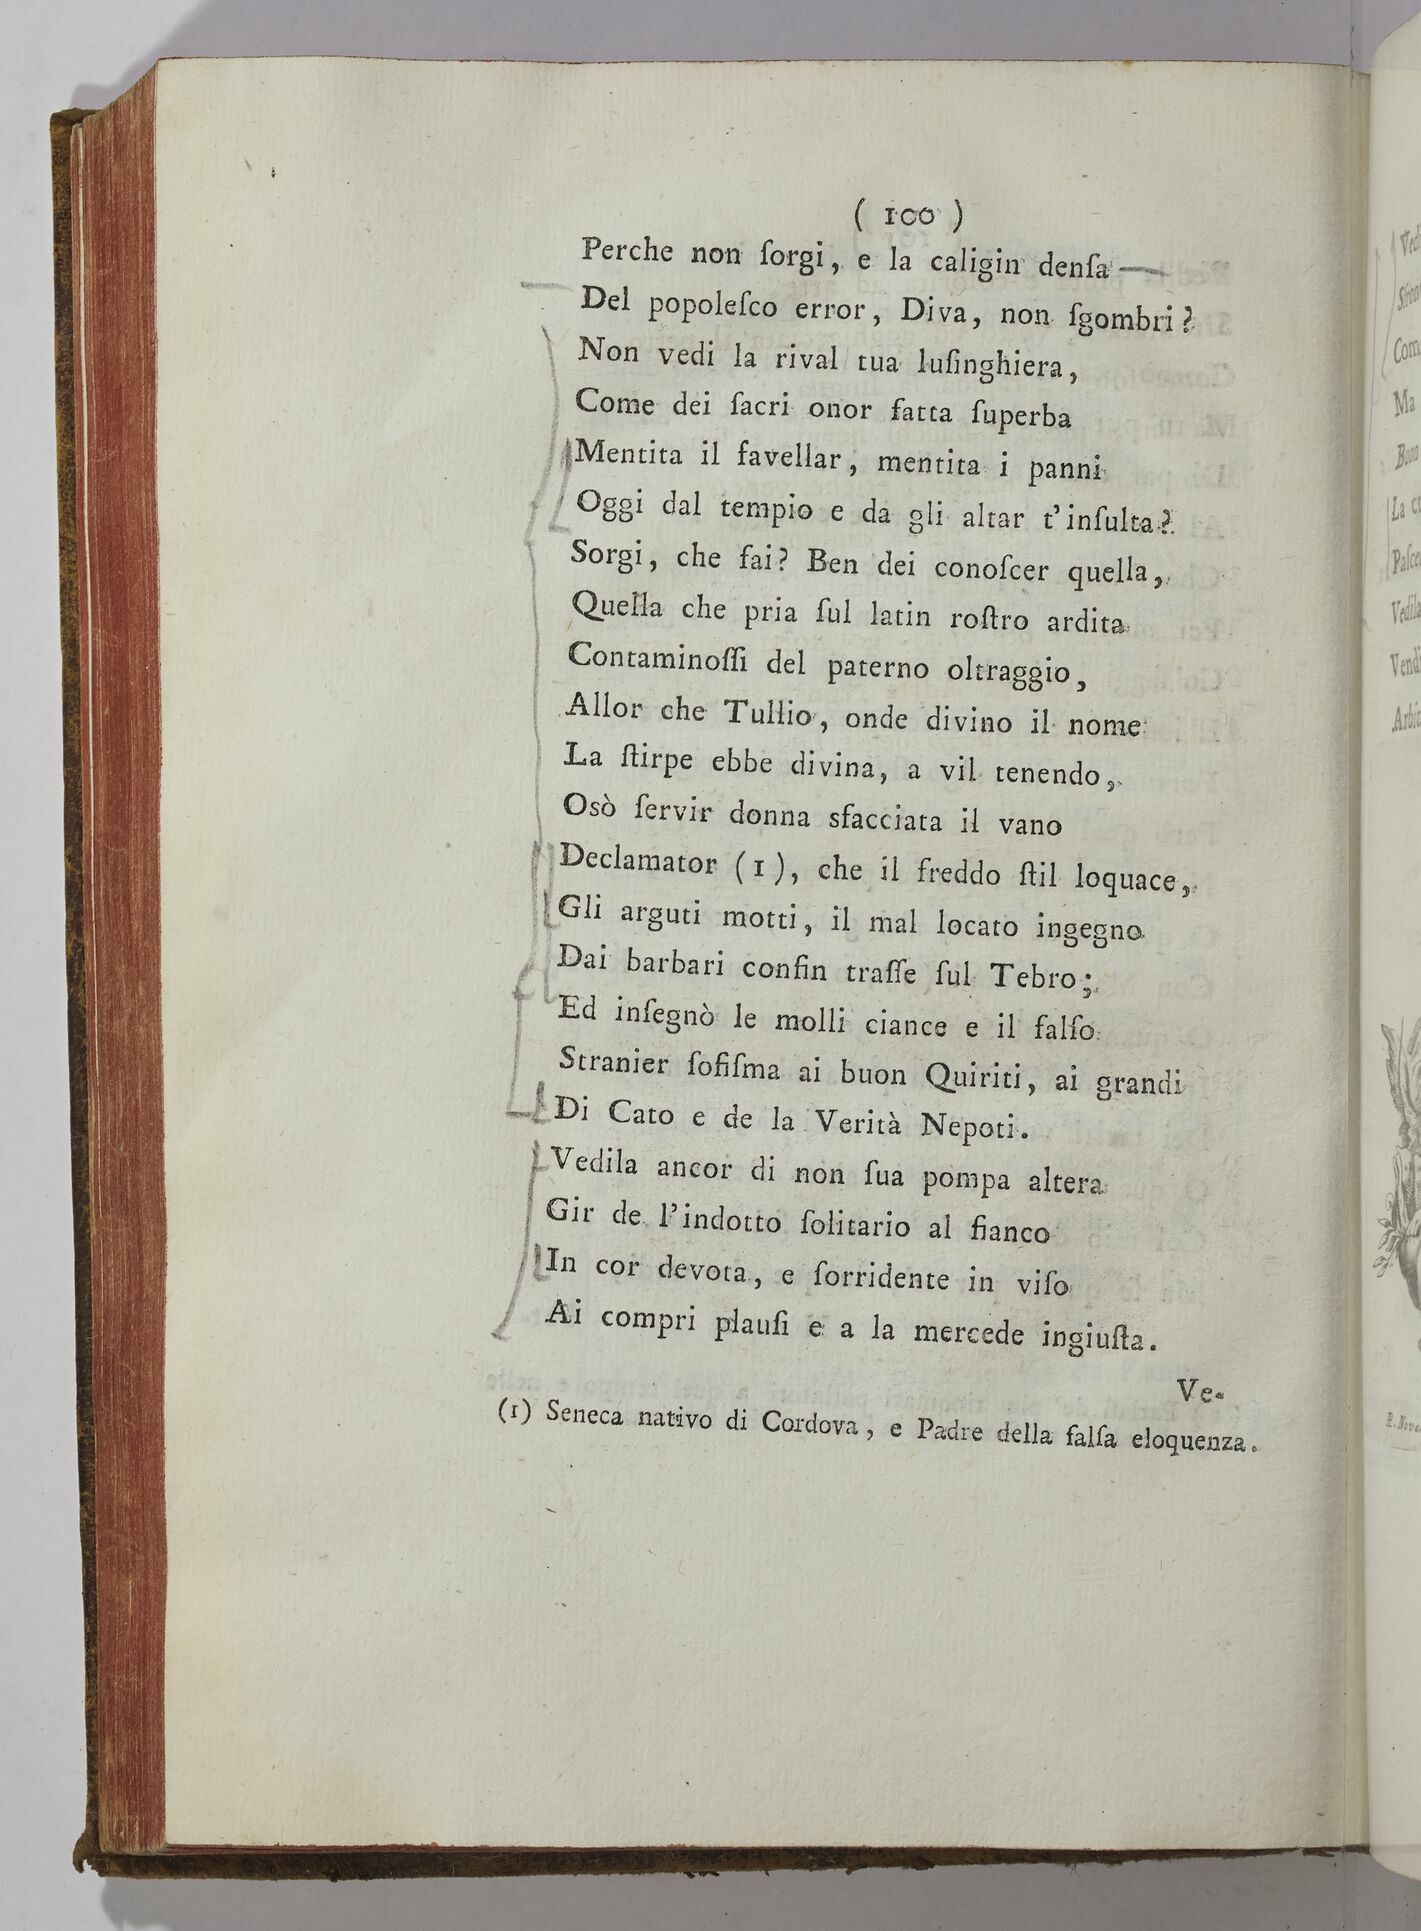 ( 100 )
Perche non ſorgi, e la caligin denſa
Del popoleſco error, Diva, non ſgombri?
Non vedi la rival tua luſinghiera,
Come dei ſacri onor fatta ſuperba
Mentita il favellar, mentita i panni
Oggi dal tempio e da gli altar t'inſulta?
Sorgi, che fai? Ben dei conoſcer quella,
Quella che pria ſul latin roſtro ardita
Contaminoſſi del paterno oltraggio,
Allor che Tullio, onde divino il nome
La ſtirpe ebbe divina, a vil tenendo,
Osò ſervir donna sfacciata il vano
Declamator (1), che il freddo ſtil loquace,
Gli arguti motti, il mal locato ingegno
Dai barbari confin traſſe ſul Tebro;
Ed inſegnò le molli ciance e il falſo
Stranier ſofiſma ai buon Quiriti, ai grandi
Di Cato e de la Verità Nepoti.
Vedila ancor di non ſua pompa altera
Gir de l'indotto ſolitario al fianco
In cor devota, e ſorridente in viſo
Ai compri plauſi e a la mercede ingiuſta.
Ve-
(1) Seneca nativo di Cordova, e Padre della falſa eloquenza.
Ma
La